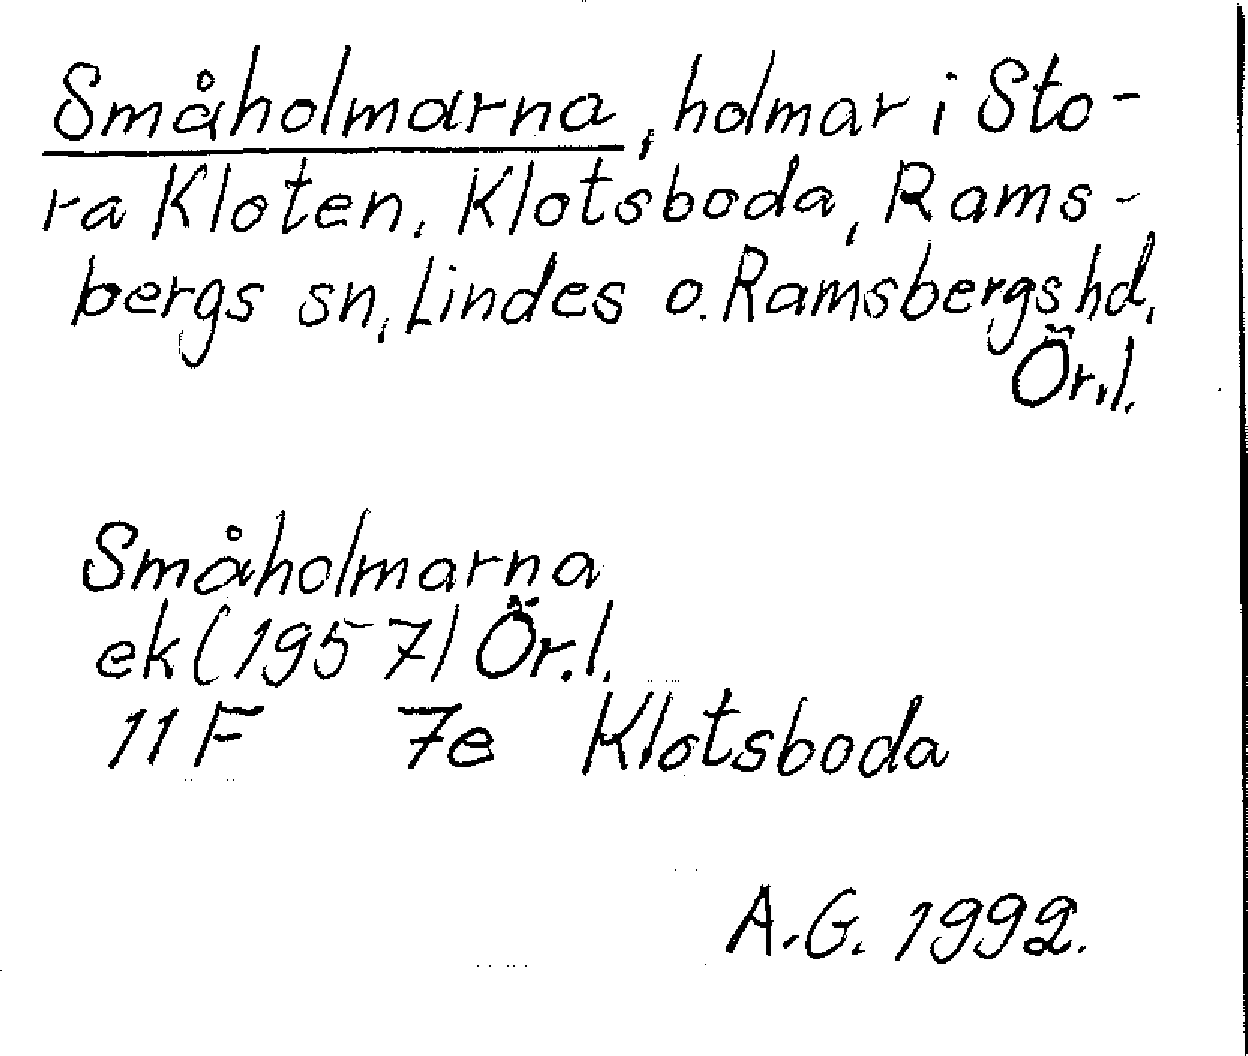 Småholmarna, holmar i Sto-
ra Kloten, Klotsboda, Rams-
bergs sn, Lindes o. Ramsbergs hd,
Ör.l.
Småholmarna
ek (1957) Ör.l.
11F 7e Klotsboda
A.G. 1992.